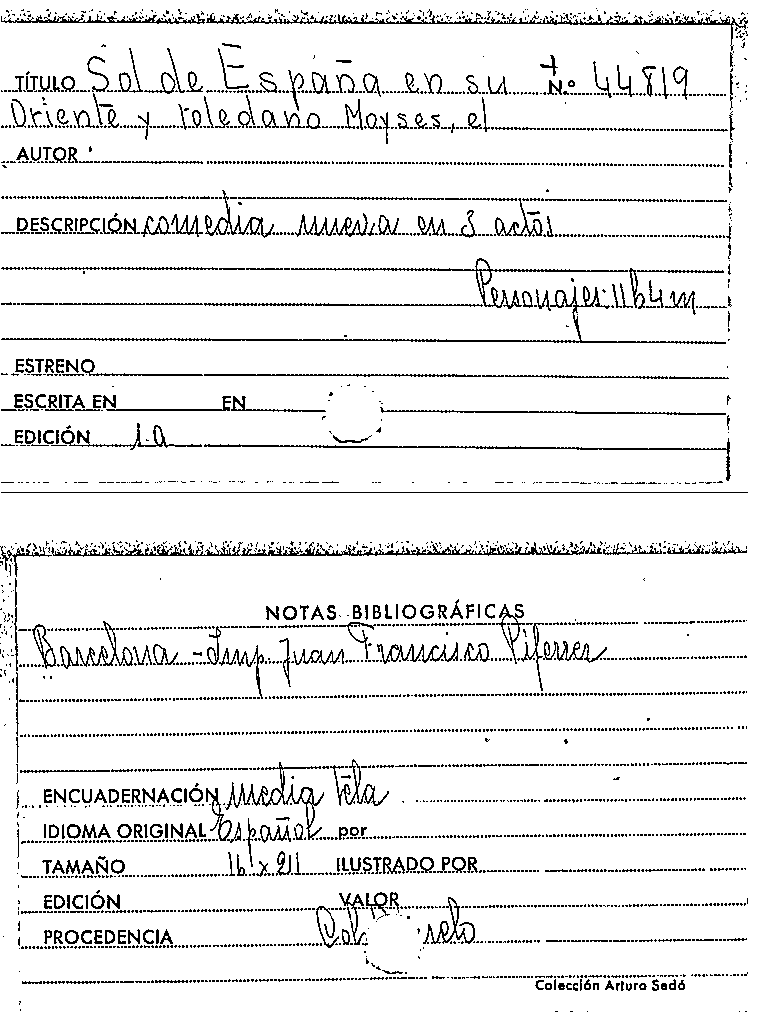 TÍTULO Sol de España en su N.º 44819
Oriente y toledano Moyses, el
AUTOR
DESCRIPCIÓN comedia nueva en 3 actos
Personajes: 11h 4m
ESTRENO
ESCRITA EN EN
EDICIÓN 1.a
NOTAS BIBLIOGRÁFICAS
Barcelona - Imp. Juan Francisco Piferrer
ENCUADERNACIÓN media tela
IDIOMA ORIGINAL Español por
TAMAÑO x 211 ILUSTRADO POR
EDICIÓN VALOR
PROCEDENCIA
Colección Arturo Sedó